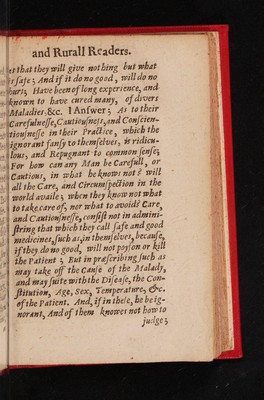 and Rurall Readers.
er that they will give nothing but what
is safe; And if it do no good, will do no
hurt; Have been of long experience, and
known to have cured many, of divers
Maladies &c. I Answer; As to their
Carefulnesse, Cautiousness, and Conscien-
tiousnesse in their Practice, which the
ignorant fansy to themselves, is ridicu-
lous, and Repugnant to common sense;
For how can any Man be Carefull, or
Cautious, in what he knows not? will
all the Care, and Circumspection in the
world availe; when they know not what
to take care of, nor what to avoid? Care,
and Cautiousnesse, consist not in admini-
string that which they call safe and good
medicines, such as, in themselves, because,
if they do no good, will not poyson or kill
the Patient; But in prascribing such as
may take off the Cause of the Malady,
and may suite with the Disease, the Con-
stitution, Age, Sex, Temperature, &c.
of the Patient. And, if in these, he be ig-
norant, And of them knowes not how to
judge;